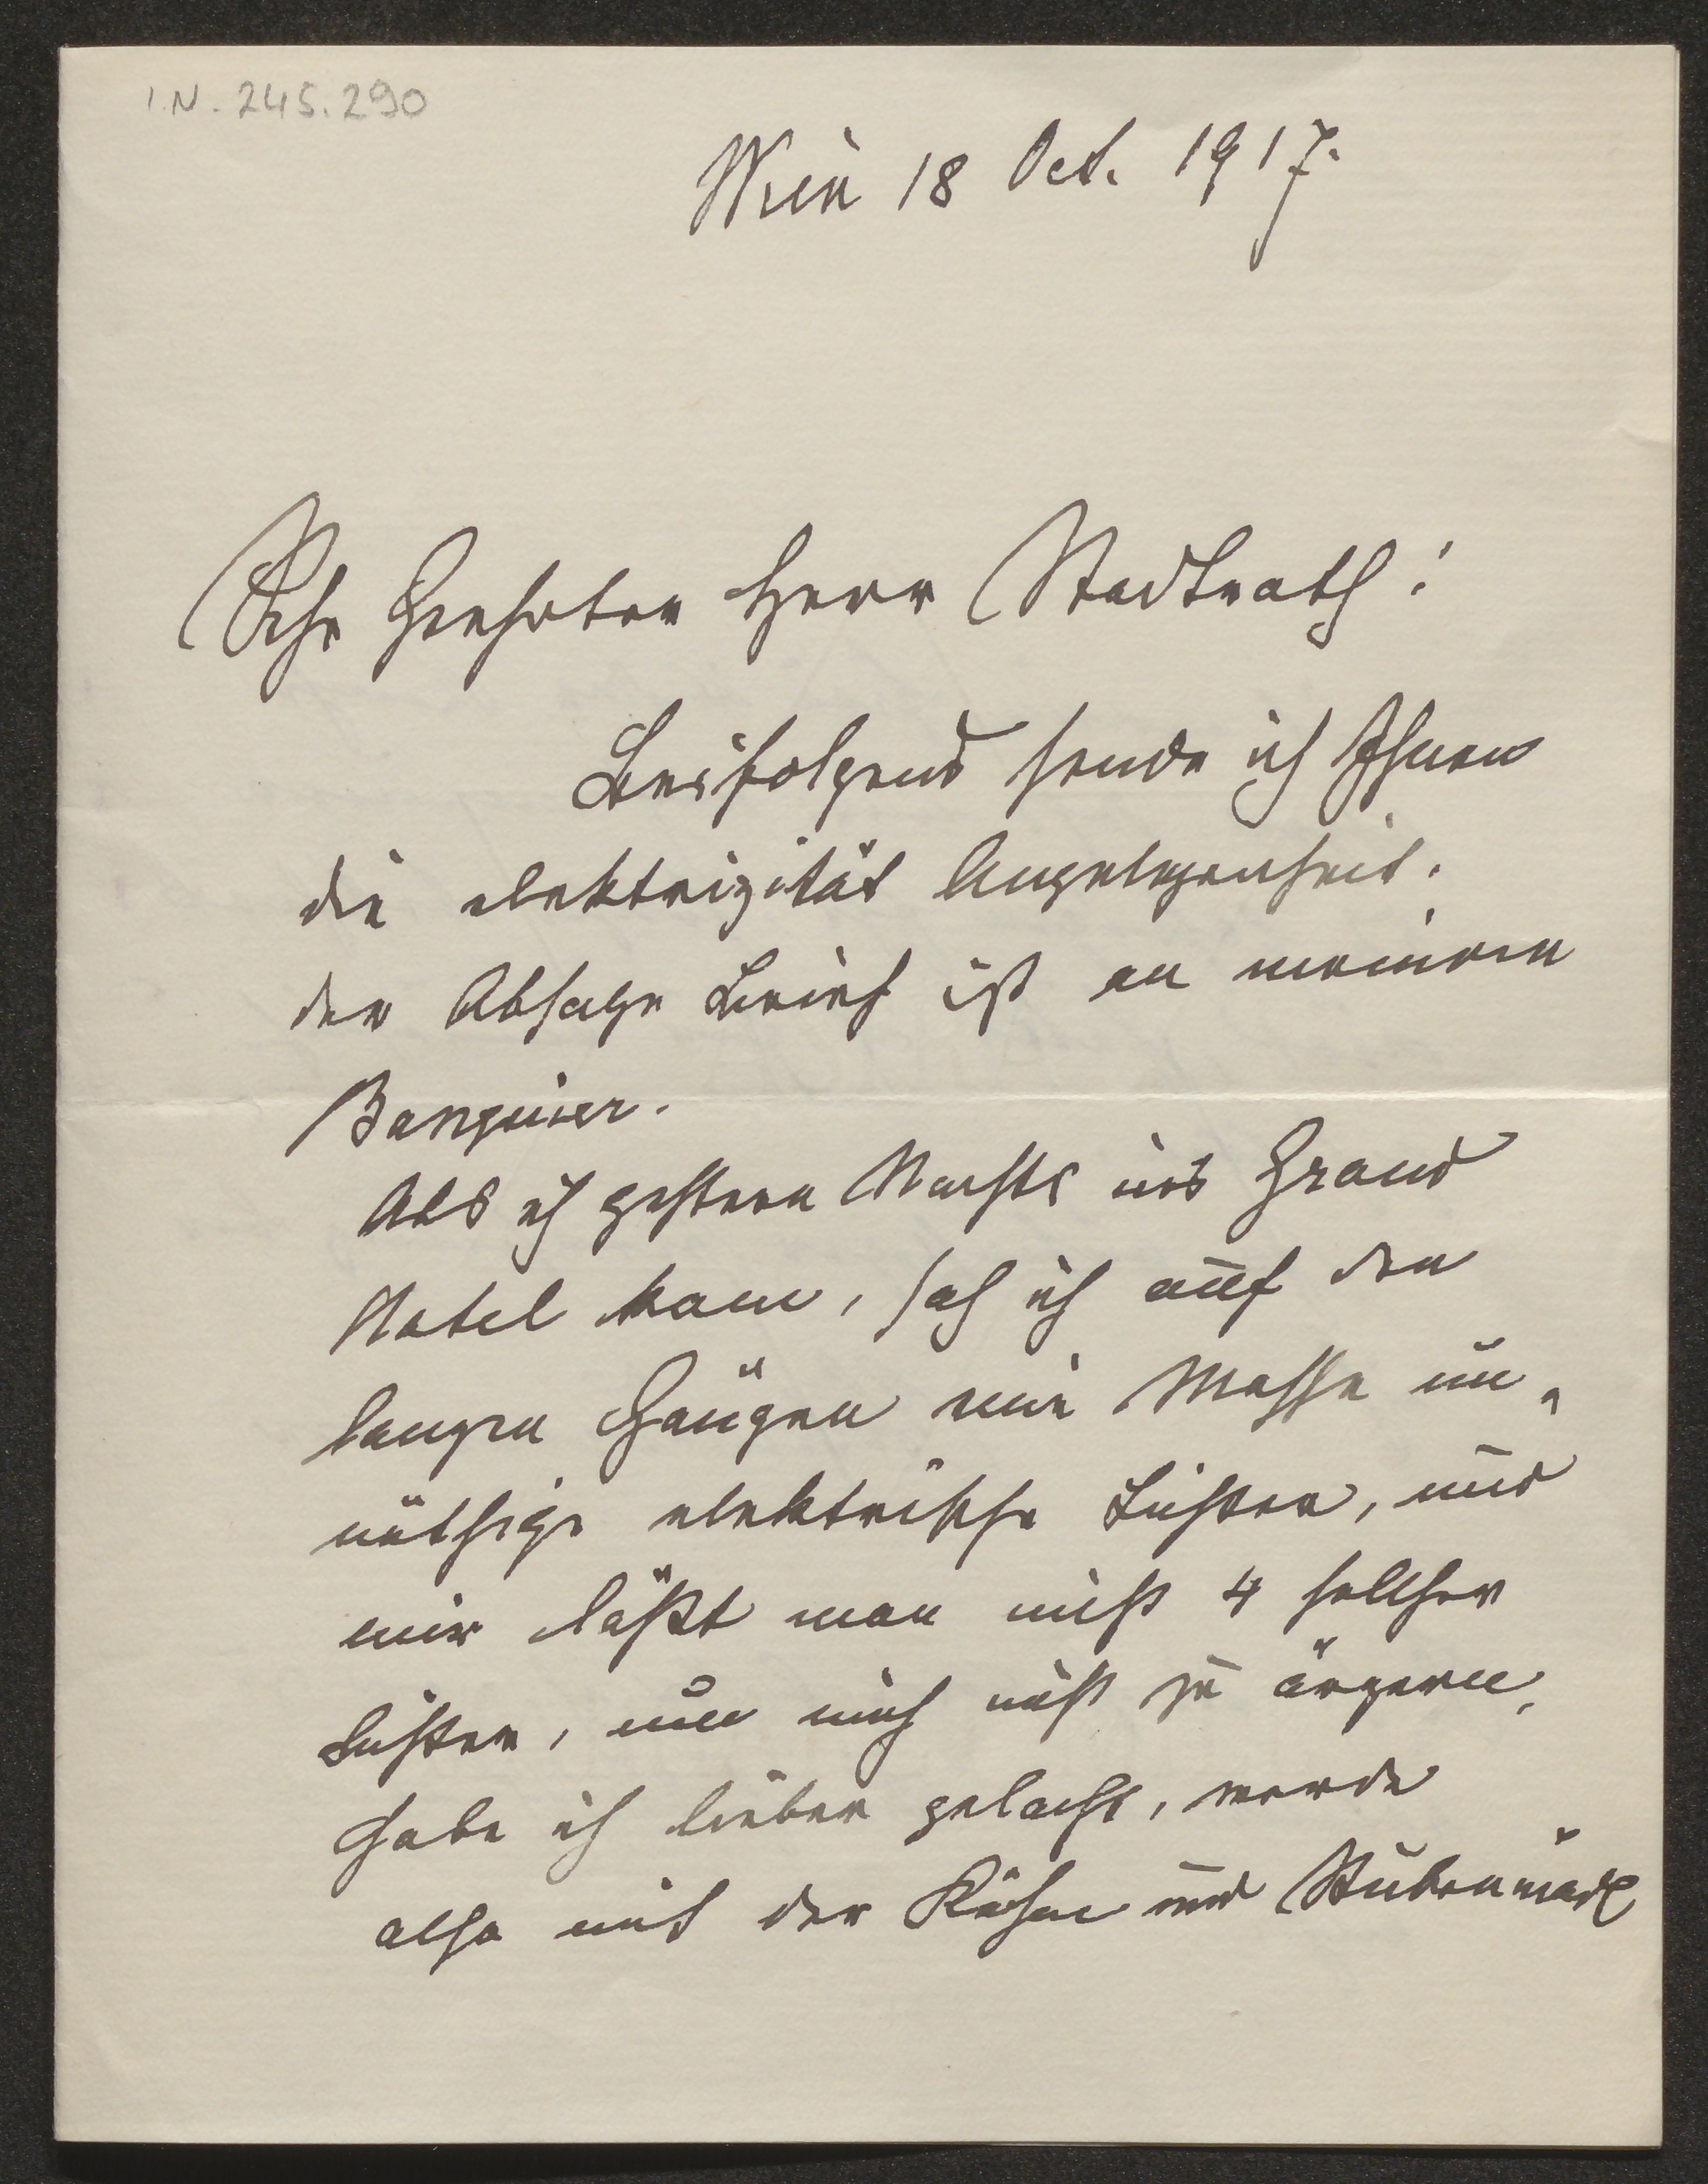 I.N. 245.290
Wien 18 Oct. 1917.
Sehr Geehrter Herr Stadtrath!
Beifolgend sende ich Ihnen
die elektrizität Angelegenheit.
der Absage Brief ist an meinen
Banquier.
Als ich gestern Nachts ins Grand
Hotel kam, sah ich auf den
langen Gängen eine Masse un„
nöthige elektrische Lichter, und
mir läßt man nicht 4 solcher
Lichter, um mich nicht zu ärgern,
habe ich lieber gelacht, werde
also mit der Köchin und Stubenmädl